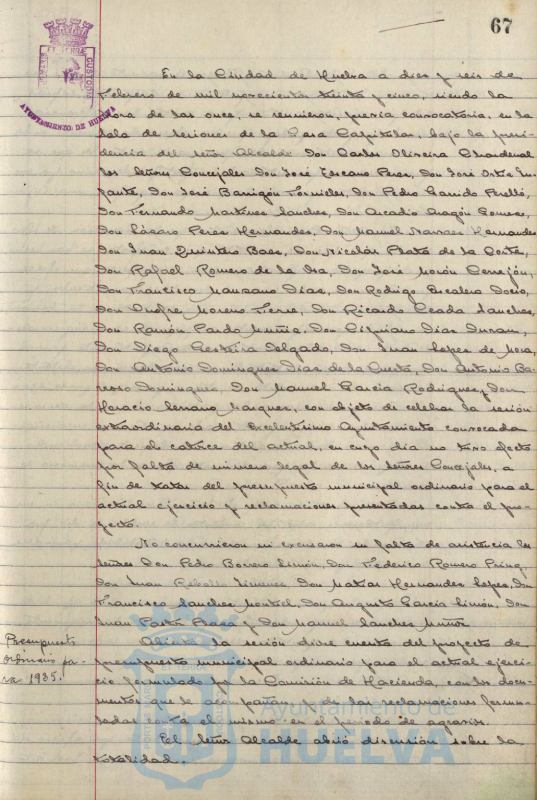 67
AYUNTAMIENTO DE HUELVA
En la Ciudad de Huelva a diez y seis de
Febrero de mil novecientos treinta y cinco, siendo la
hora de las once, se reunieron, previa convocatoria, en la
sala de sesiones de la Casa Capitular, bajo la presi-
dencia del señor Alcalde Don Carlos Oliveira Chardenal
los señores Concejales Don José Escano Perez, Don José Ortiz In-
fante, Don José Barrigón Fornieles, Don Pedro Garrido Perelló,
Don Fernando Martinez Sanchez, Don Arcadio Aragón Gomez,
Don Lázaro Perez Hernandez, Don Manuel Narvaez Hernandez
Don Juan Quintero Baez, Don Nicolás Plata de la Corte,
Don Rafael Romero de la Osa, Don José Morón Cerrejón,
Don Francisco Manzano Díaz, Don Rodrigo Escalera Docio,
Don Onofre Moreno Ferre, Don Ricardo Ceada Sanchez,
Don Ramón Pardo Muñiz, Don Cipriano Díaz Duran,
Don Diego Delgado, Don Juan Lopez de Mora,
Don Antonio Dominguez Díaz de la Cuesta, Don Antonio Ba-
rroso Dominguez, Don Manuel García Rodriguez y Don
Horacio Serrano Marquez, con objeto de celebrar la sesión
extraordinaria del Excelentísimo Ayuntamiento convocada
para el catorce del actual, en cuyo dia no tuvo efecto
por falta de número legal de los señores Concejales, a
fin de tratar del presupuesto municipal ordinario para el
actual ejercicio y reclamaciones presentadas contra el pro-
yecto.
No concurrieron ni excusaron su falta de asistencia los
señores Don Pedro Borrero Limón, Don Federico Romero
Don Juan Rebollo Jimenez Don Matías Hernandez Lopez, Don
Francisco Sanchez Montiel, Don Augusto García Limón, Don
Juan y Don Manuel Sanchez Muñoz
Presupuesto
ordinario pa-
ra 1935.
Abierta la sesión dióse cuenta del proyecto de
presupuesto municipal ordinario para el actual ejerci-
cio formulado por la Comisión de Hacienda, con los docu-
mentos que le acompañan y de las reclamaciones formu-
ladas contra el mismo en el período de agravios.
El Señor Alcalde abrió discusión sobre la
totalidad.
Ayuntamiento de
HUELVA